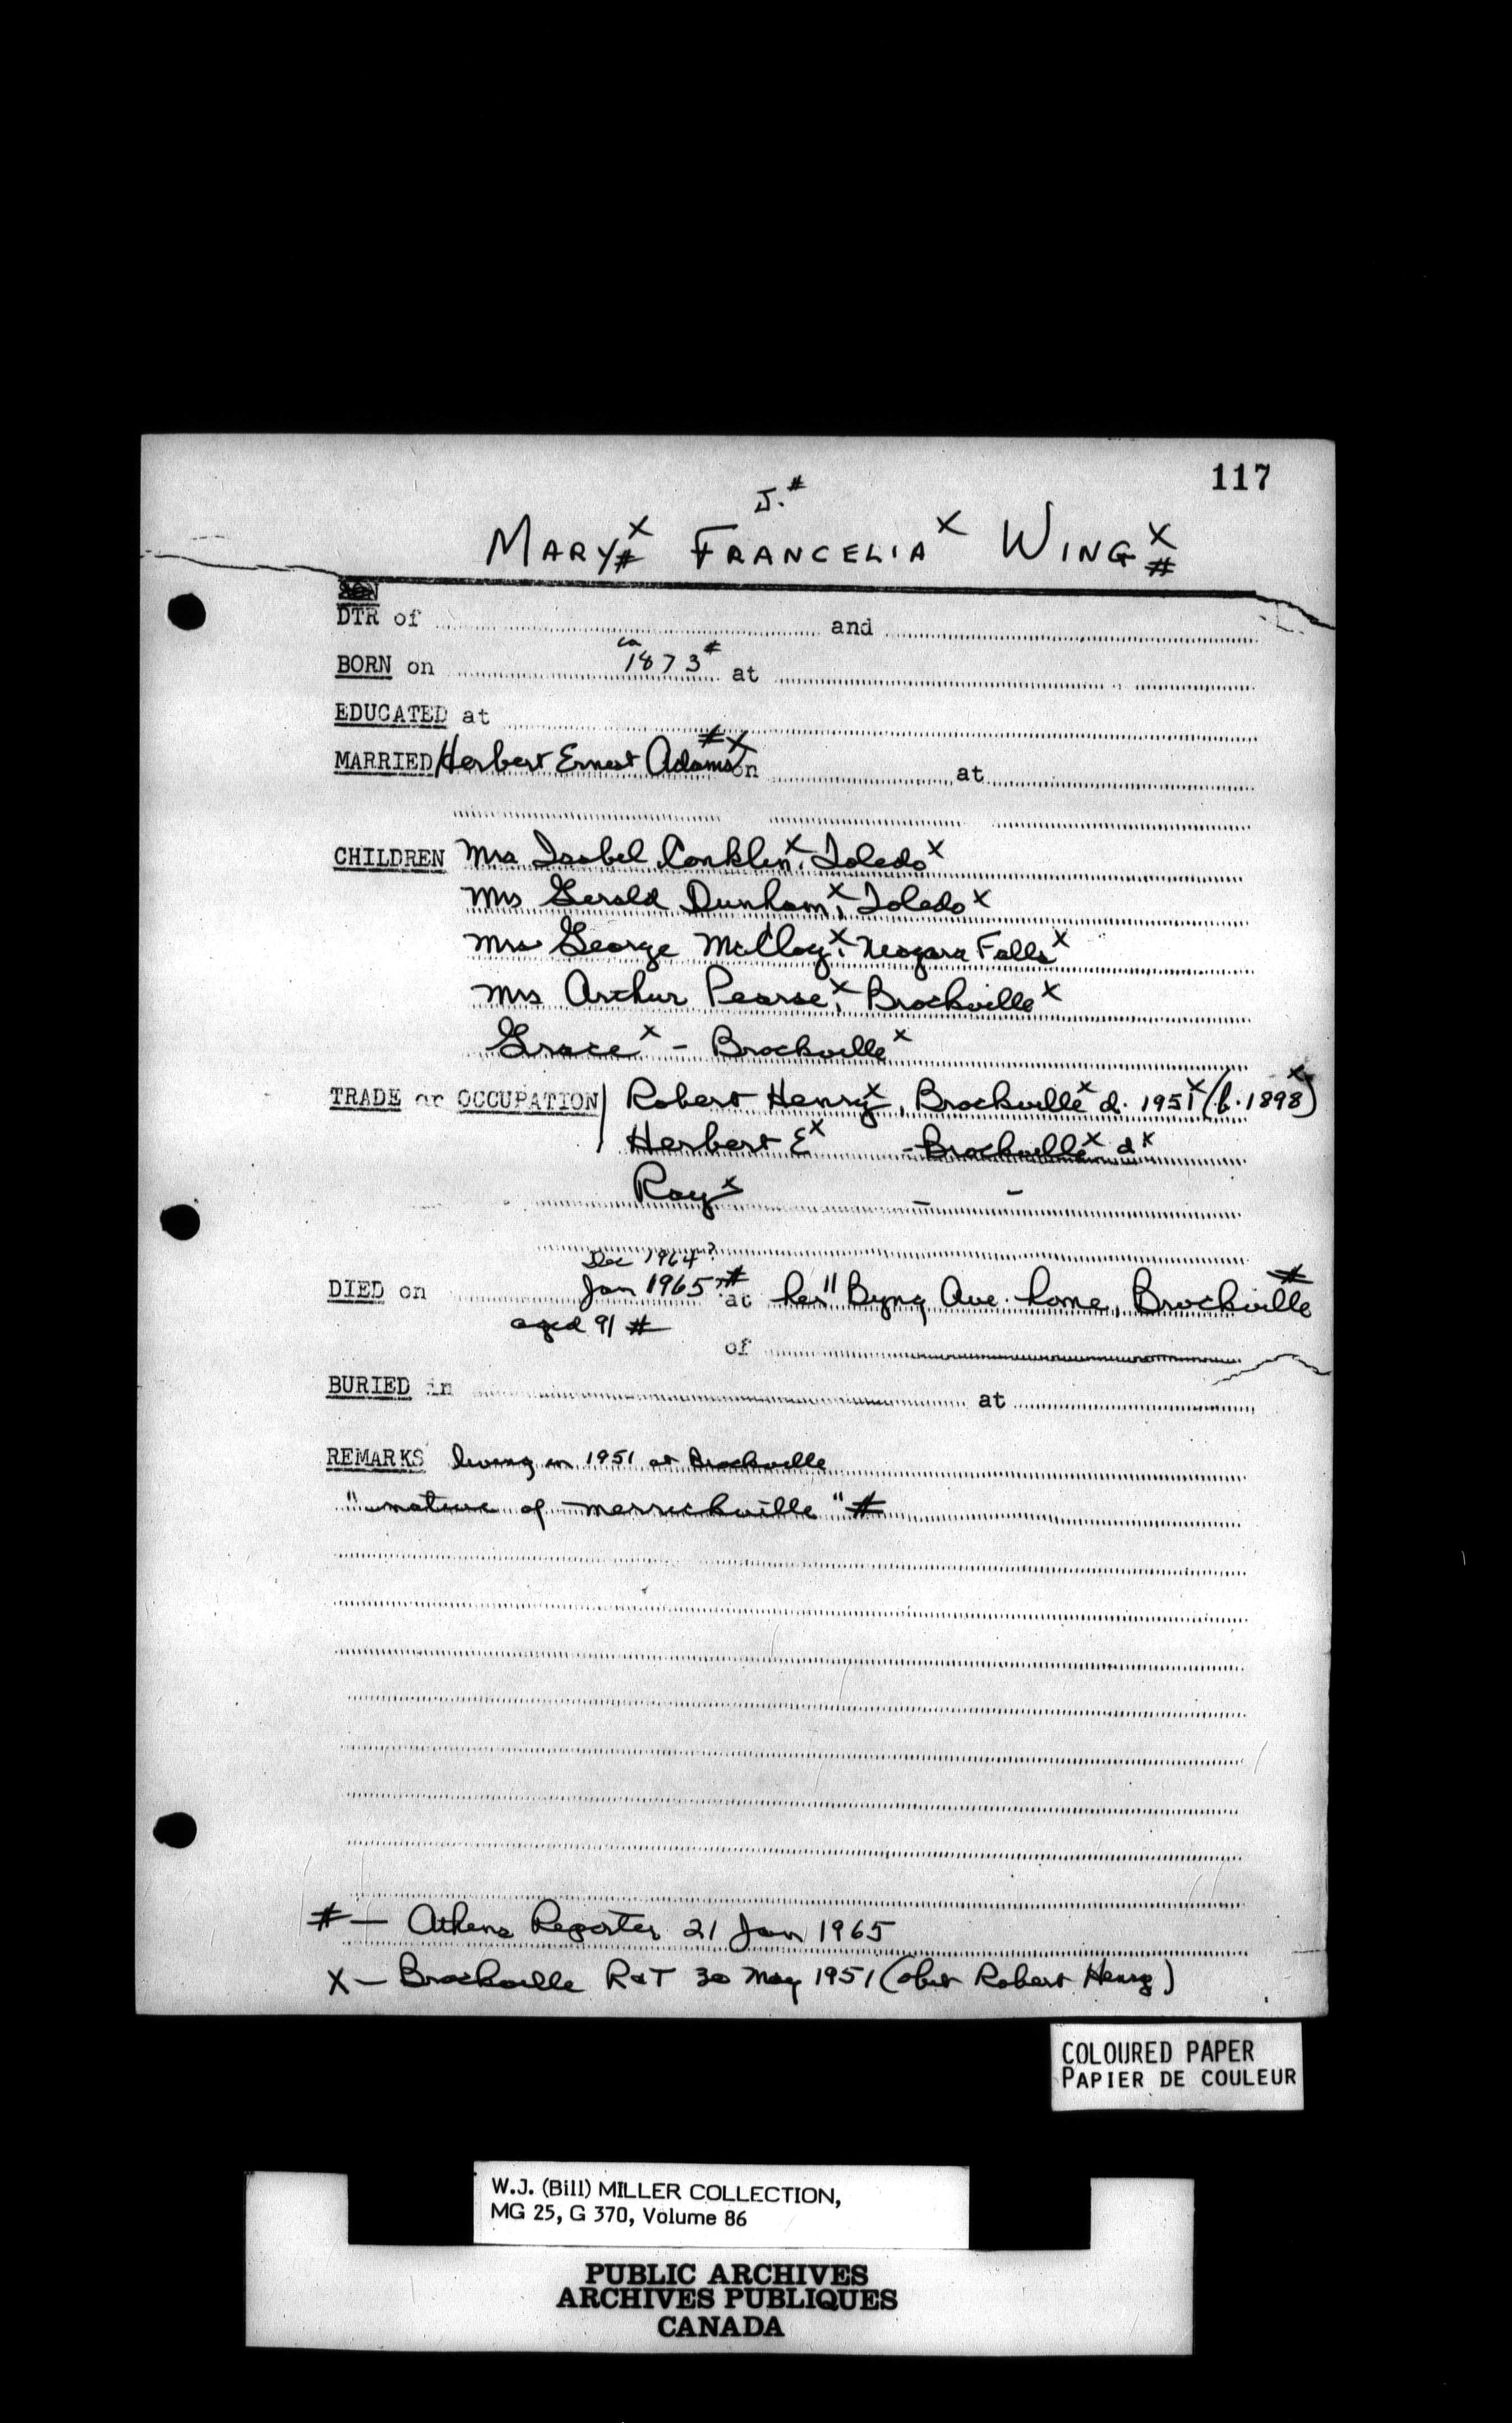 117
J.#
MARY#X FRANCELIA X WING X#
SON
DTR of and
BORN on ca 1873# at
EDUCATED at
MARRIED Herbert Ernest Adams #X on at
CHILDREN Mrs Isabel Conklin X, Toledo X
Mrs Gerald Dunham X, Toledo X
Mrs George McCloy X, Niagara Falls X
Mrs Arthur Pearse X, Brockville X
Grace X - Brockville X
TRADE or OCCUPATION Robert Henry X, Brockville X d. 1951 X (b. 1898 X)
Herbert E X - Brockville X d X
Roy X - -
Dec 1964?
DIED on Jan 1965?# at her "Byng Ave. home, Brockville #
aged 91 #
of
BURIED in at
REMARKS living in 1951 at Brockville
"native of Merrickville" #
# — Athens Reporter 21 Jan 1965
X — Brockville R&T 30 May 1951 (obit Robert Henry)
COLOURED PAPER
PAPIER DE COULEUR
W.J. (Bill) MILLER COLLECTION,
MG 25, G 370, Volume 86
PUBLIC ARCHIVES
ARCHIVES PUBLIQUES
CANADA